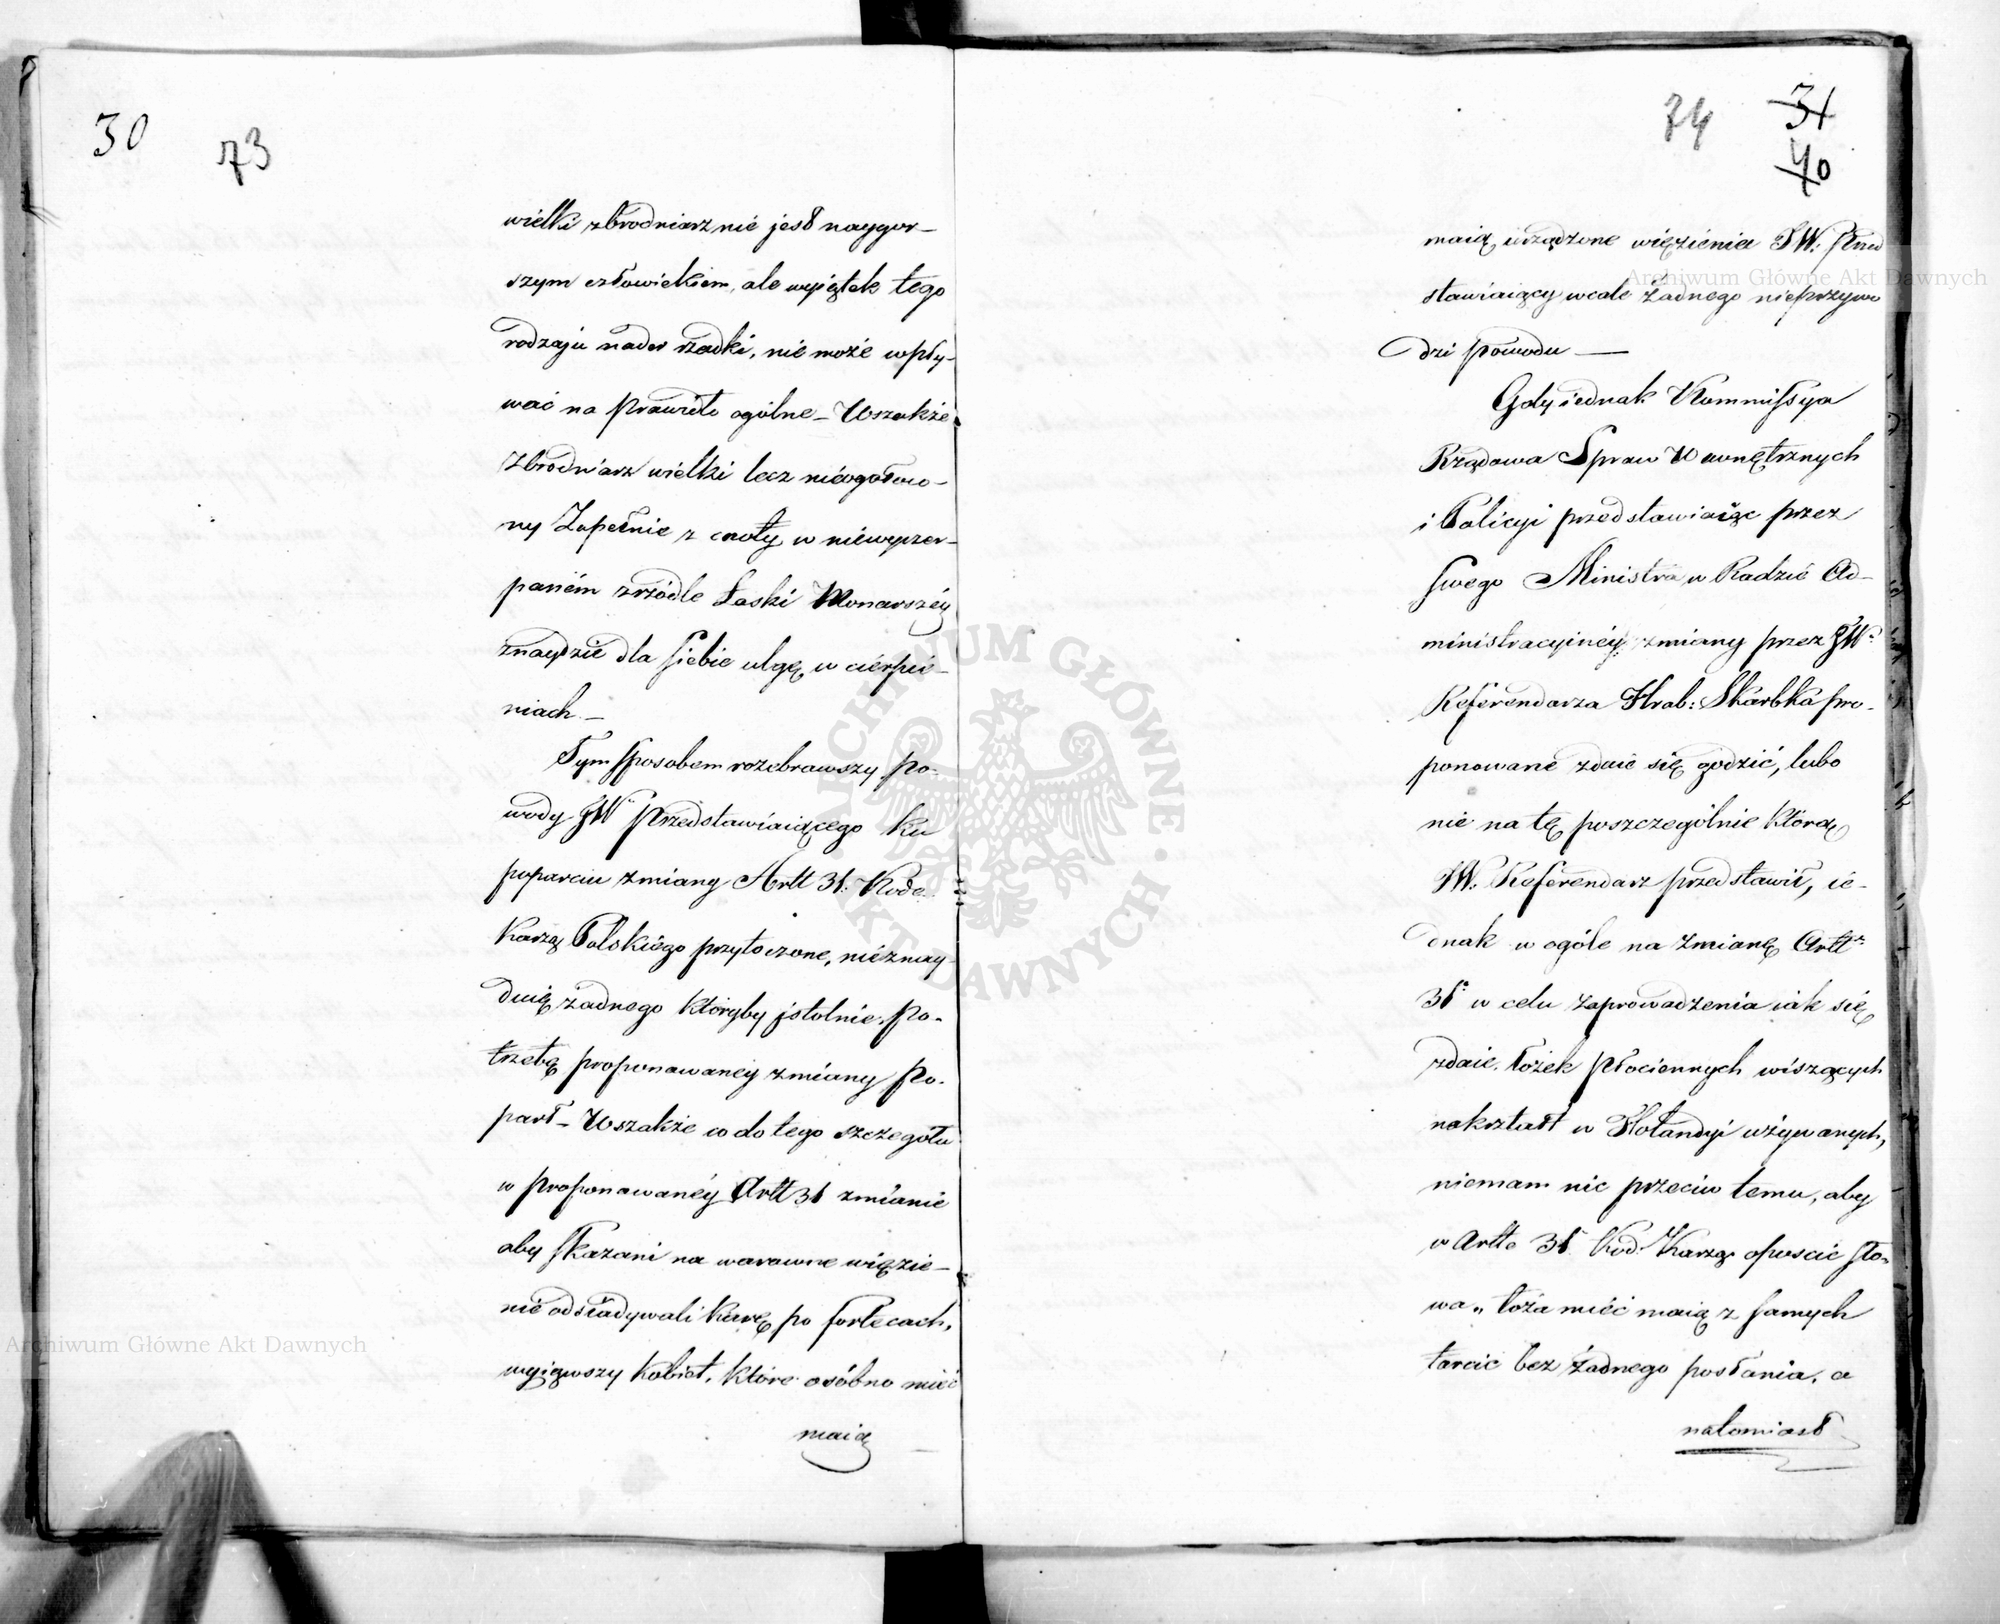 30
73
wielki zbrodniarz nie jest naygor-
szym człowiekiem, ale wyiątek tego
rodzaju nader rzadki, nie może wpły-
wać na prawidło ogólne – Wszakże
zbrodniarz wielki lecz nieogołoco-
ny Zupełnie z cnoty w niewyczer-
paném zrzódle Łaski Monarszéy
znaydzie dla siebie ulgę w cierpie-
niach. –
Tym sposobem rozebrawszy po-
wody JW° Przedstawiaiącego ku
poparciu zmiany Artt 31. Kode.
Karzą Polskiégo przytoczone, nieznay
duię żadnego któryby istotnie po-
trzebę proponowaney zmiany po-
parł – Wszakże co do tego szczegółu
w proponowanéy Artt 31 zmianie
aby skazani na warowne więzie-
nie odsiadywali karę po fortecach,
wyiąwszy kobiet, które osóbno mieć
maią
74
31
40
maią urządzone więzienia JW. Przed
stawiaiący wcale żadnego nieprzywo
dzi powodu —
Gdy iednak Kommissya
Rządowa Spraw Wewnętrznych
i Policyi przedstawiaiąc przez
swego Ministra w Radzie Ad-
ministracyinéy zmiany przez JW°
Referendarza Hrab: Skarbka pro-
ponowane zdaie się godzić, lubo
nie na tę poszczególnie którą
JW. Referendarz przedstawił, ie-
dnak w ogóle na zmianę Artt
31° w celu zaprowadzenia iak się
zdaie łóżek płóciennych wiszących
nakształt w Hollandyi używanych,
niemam nic przeciw temu, aby
w Artte 31 Kod: Karzą opuscić sło-
wa „ łoża mieć maią z samych
tarcic bez żadnego posłania, a
natomiast
Archiwum Główne Akt Dawnych
Archiwum Główne Akt Dawnych
ARCHIWUM GŁÓWNE · AKT DAWNYCH ·